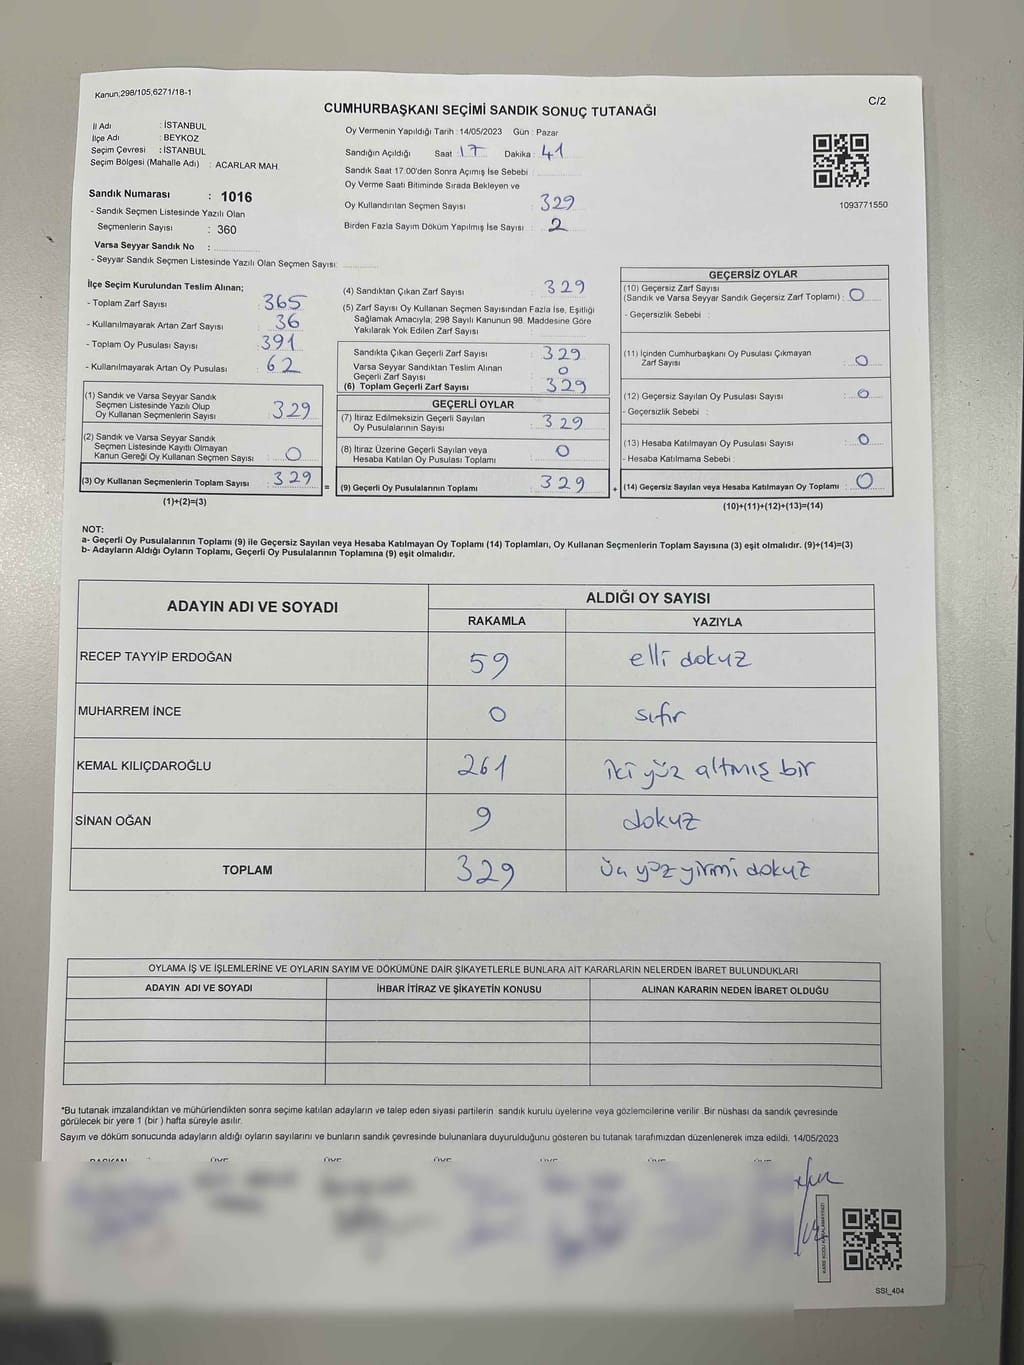 Kanun;298/105,6271/18-1
C/2
CUMHURBAŞKANI SEÇİMİ SANDIK SONUÇ TUTANAĞI
İl Adı : İSTANBUL
İlçe Adı : BEYKOZ
Seçim Çevresi : İSTANBUL
Seçim Bölgesi (Mahalle Adı) : ACARLAR MAH.
Sandık Numarası : 1016
- Sandık Seçmen Listesinde Yazılı Olan
Seçmenlerin Sayısı : 360
Varsa Seyyar Sandık No :
- Seyyar Sandık Seçmen Listesinde Yazılı Olan Seçmen Sayısı:
Oy Vermenin Yapıldığı Tarih :14/05/2023 Gün : Pazar
Sandığın Açıldığı Saat 17 Dakika : 41
Sandık Saat 17.00'den Sonra Açımış İse Sebebi :
Oy Verme Saati Bitiminde Sırada Bekleyen ve
Oy Kullandırılan Seçmen Sayısı : 329
Birden Fazla Sayım Döküm Yapılmış İse Sayısı : 2
1093771550
İlçe Seçim Kurulundan Teslim Alınan;
- Toplam Zarf Sayısı : 365
- Kullanılmayarak Artan Zarf Sayısı : 36
- Toplam Oy Pusulası Sayısı : 391
- Kullanılmayarak Artan Oy Pusulası : 62
(1) Sandık ve Varsa Seyyar Sandık
Seçmen Listesinde Yazılı Olup
Oy Kullanan Seçmenlerin Sayısı : 329
(2) Sandık ve Varsa Seyyar Sandık
Seçmen Listesinde Kayıtlı Olmayan
Kanun Gereği Oy Kullanan Seçmen Sayısı : 0
(3) Oy Kullanan Seçmenlerin Toplam Sayısı : 329
(1)+(2)=(3)
(4) Sandıktan Çıkan Zarf Sayısı : 329
(5) Zarf Sayısı Oy Kullanan Seçmen Sayısından Fazla İse, Eşitliği
Sağlamak Amacıyla; 298 Sayılı Kanunun 98. Maddesine Göre
Yakılarak Yok Edilen Zarf Sayısı :
Sandıkta Çıkan Geçerli Zarf Sayısı : 329
Varsa Seyyar Sandıktan Teslim Alınan
Geçerli Zarf Sayısı : 0
(6) Toplam Geçerli Zarf Sayısı : 329
GEÇERLİ OYLAR
(7) İtiraz Edilmeksizin Geçerli Sayılan
Oy Pusulalarının Sayısı : 329
(8) İtiraz Üzerine Geçerli Sayılan veya
Hesaba Katılan Oy Pusulası Toplamı : 0
= (9) Geçerli Oy Pusulalarının Toplamı : 329
GEÇERSİZ OYLAR
(10) Geçersiz Zarf Sayısı
(Sandık ve Varsa Seyyar Sandık Geçersiz Zarf Toplamı) : 0
- Geçersizlik Sebebi :
(11) İçinden Cumhurbaşkanı Oy Pusulası Çıkmayan
Zarf Sayısı : 0
(12) Geçersiz Sayılan Oy Pusulası Sayısı : 0
- Geçersizlik Sebebi :
(13) Hesaba Katılmayan Oy Pusulası Sayısı : 0
- Hesaba Katılmama Sebebi :
+ (14) Geçersiz Sayılan veya Hesaba Katılmayan Oy Toplamı : 0
(10)+(11)+(12)+(13)=(14)
NOT:
a- Geçerli Oy Pusulalarının Toplamı (9) ile Geçersiz Sayılan veya Hesaba Katılmayan Oy Toplamı (14) Toplamları, Oy Kullanan Seçmenlerin Toplam Sayısına (3) eşit olmalıdır. (9)+(14)=(3)
b- Adayların Aldığı Oyların Toplamı, Geçerli Oy Pusulalarının Toplamına (9) eşit olmalıdır.
ADAYIN ADI VE SOYADI ALDIĞI OY SAYISI
RAKAMLA YAZIYLA
RECEP TAYYİP ERDOĞAN 59 elli dokuz
MUHARREM İNCE 0 sıfır
KEMAL KILIÇDAROĞLU 261 iki yüz altmış bir
SİNAN OĞAN 9 dokuz
TOPLAM 329 üç yüz yirmi dokuz
OYLAMA İŞ VE İŞLEMLERİNE VE OYLARIN SAYIM VE DÖKÜMÜNE DAİR ŞİKAYETLERLE BUNLARA AİT KARARLARIN NELERDEN İBARET BULUNDUKLARI
ADAYIN ADI VE SOYADI İHBAR İTİRAZ VE ŞİKAYETİN KONUSU ALINAN KARARIN NEDEN İBARET OLDUĞU
*Bu tutanak imzalandıktan ve mühürlendikten sonra seçime katılan adayların ve talep eden siyasi partilerin sandık kurulu üyelerine veya gözlemcilerine verilir .Bir nüshası da sandık çevresinde
görülecek bir yere 1 (bir ) hafta süreyle asılır.
Sayım ve döküm sonucunda adayların aldığı oyların sayılarını ve bunların sandık çevresinde bulunanlara duyurulduğunu gösteren bu tutanak tarafımızdan düzenlenerek imza edildi. 14/05/2023
BAŞKAN ÜYE ÜYE ÜYE ÜYE ÜYE ÜYE
SSI_404